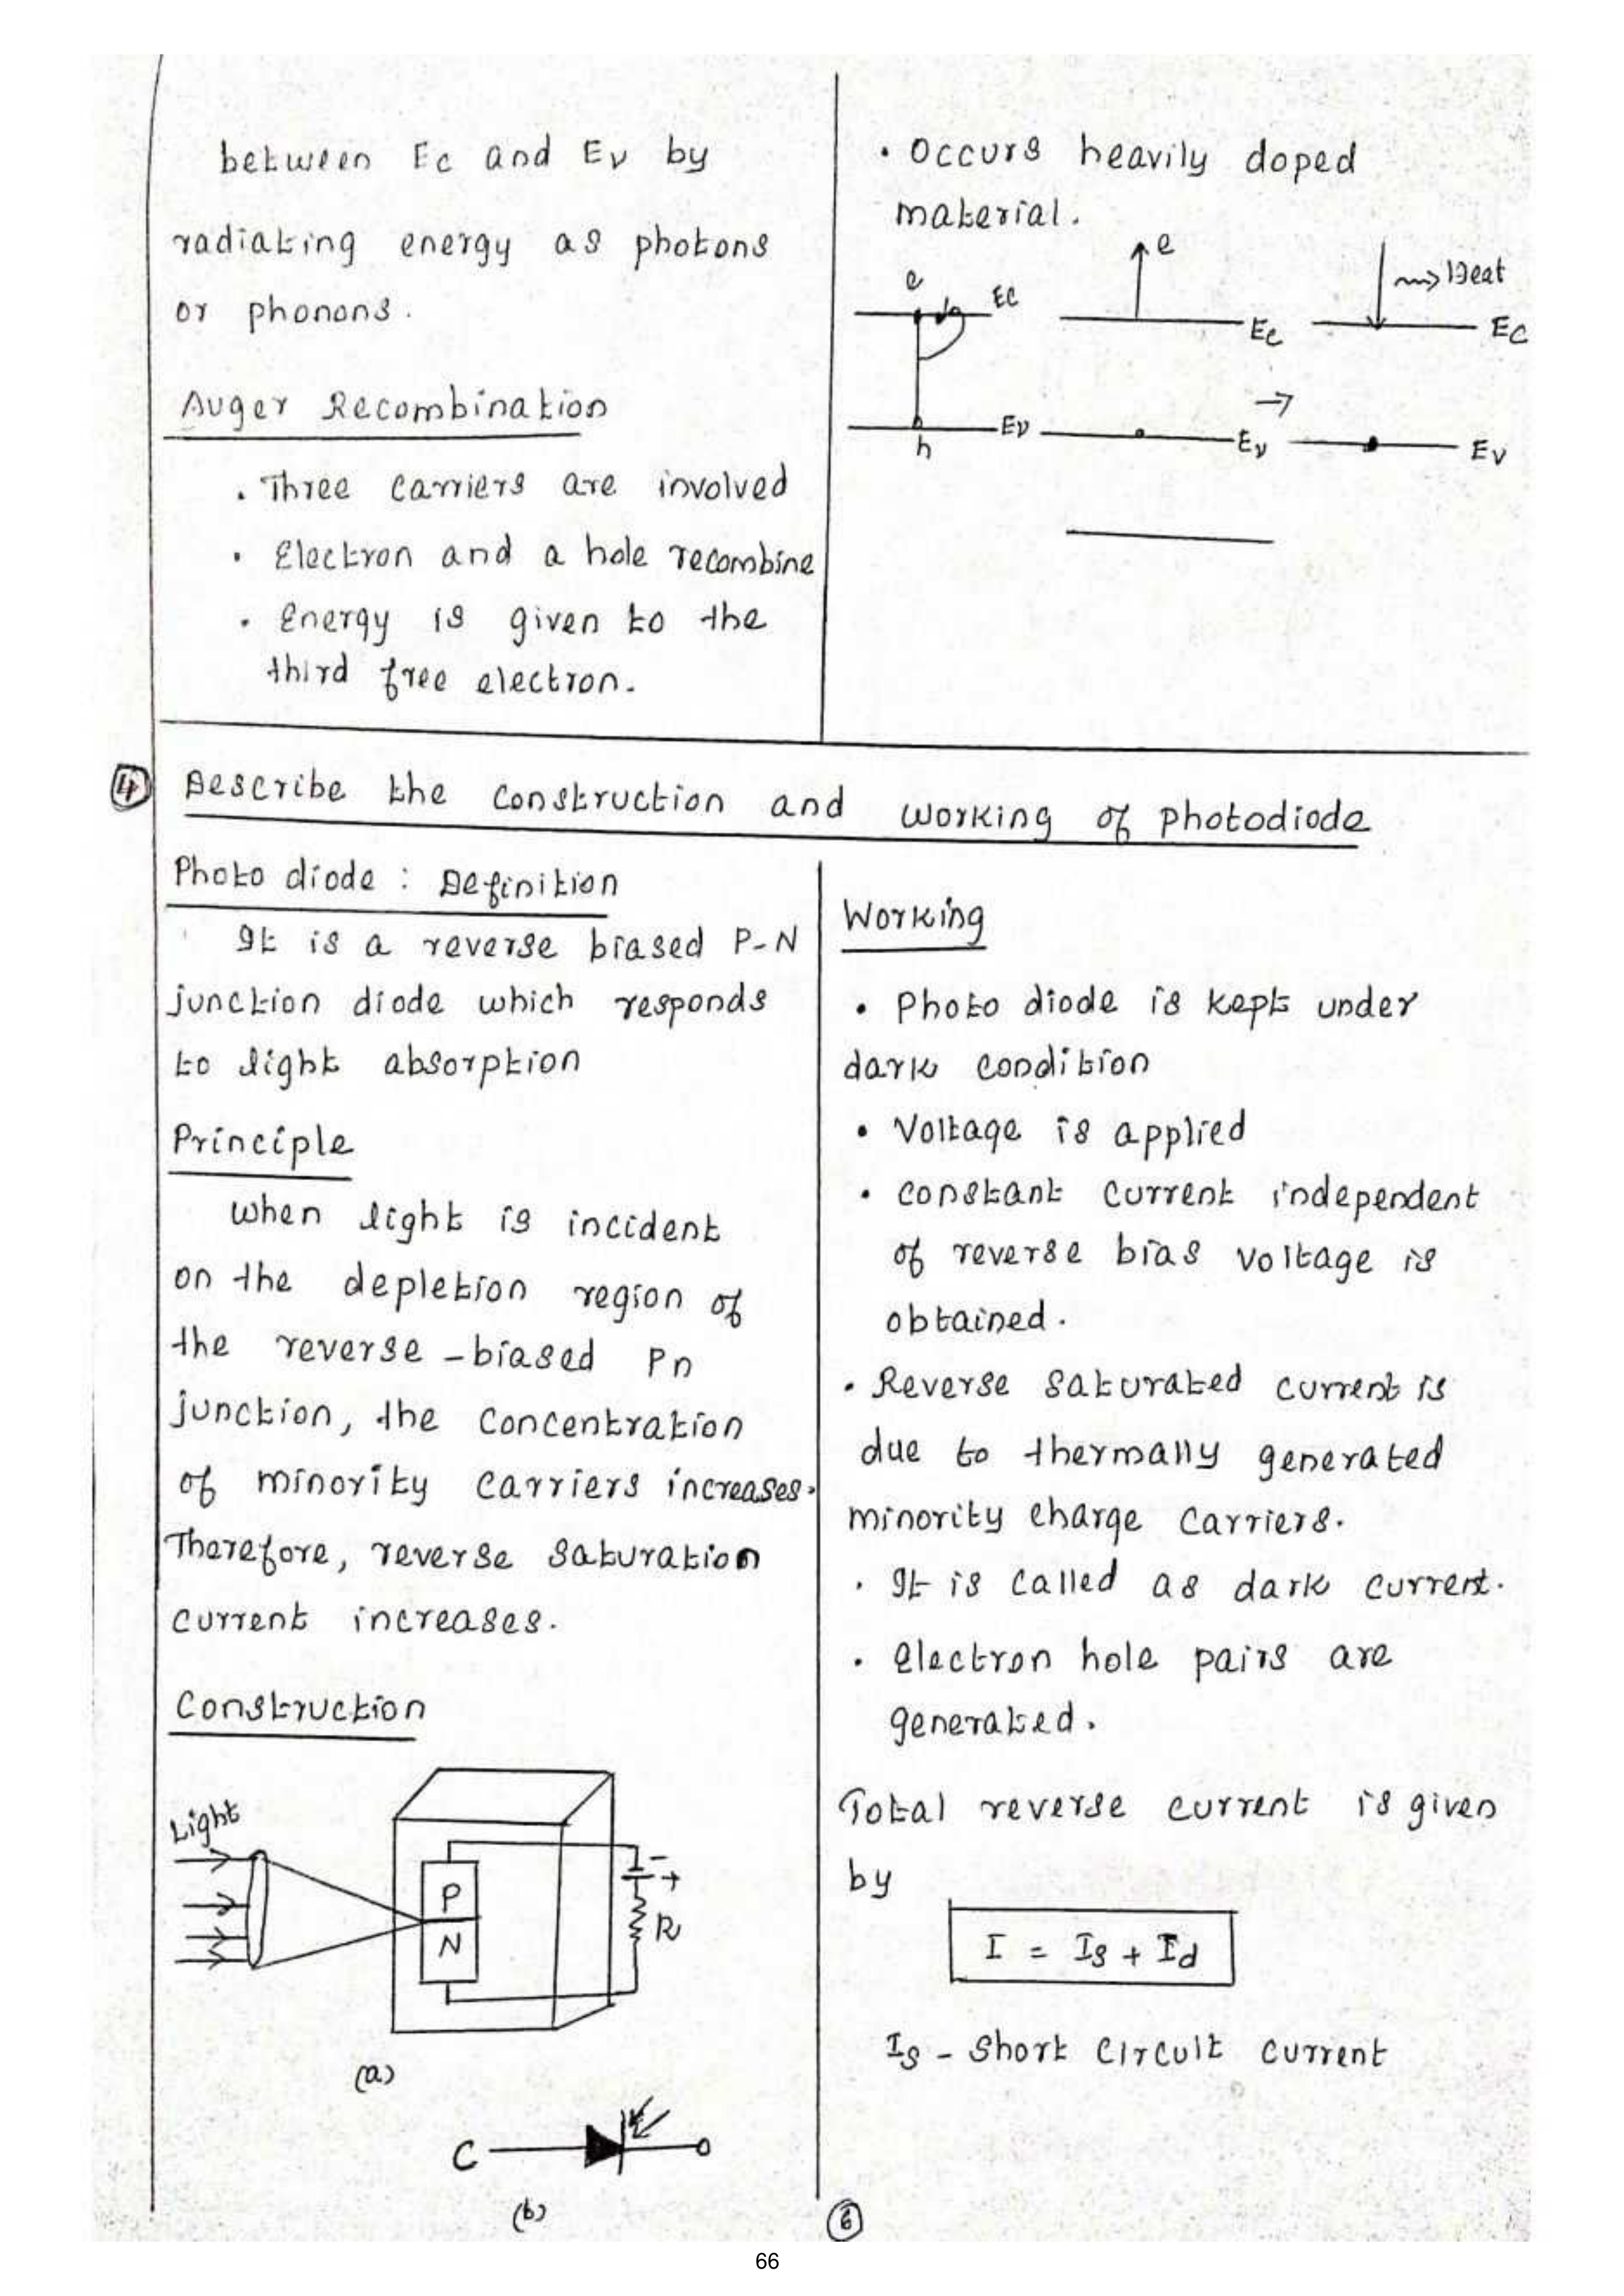 between Ec and Ev by
radiating energy as photons
or phonons.
Auger Recombination
. Three carriers are involved
. Electron and a hole recombine
. Energy is given to the
third free electron.
. Occurs heavily doped
material.
e
Ec
Ev
h
e
Ec
Ev
→
~~> Heat
Ec
Ev
4 Describe the construction and working of photodiode
Photo diode : Definition
It is a reverse biased P-N
junction diode which responds
to light absorption
Principle
When light is incident
on the depletion region of
the reverse - biased Pn
junction, the concentration
of minority carriers increases.
Therefore, reverse saturation
current increases.
Construction
Light
P
N
- +
R
(a)
C
(b)
Working
• Photo diode is kept under
dark condition
• Voltage is applied
• constant current independent
of reverse bias voltage is
obtained.
. Reverse saturated current is
due to thermally generated
minority charge carriers.
. It is called as dark current.
. electron hole pairs are
generated.
Total reverse current is given
by
I = Is + Id
Is - Short circuit current
6
66